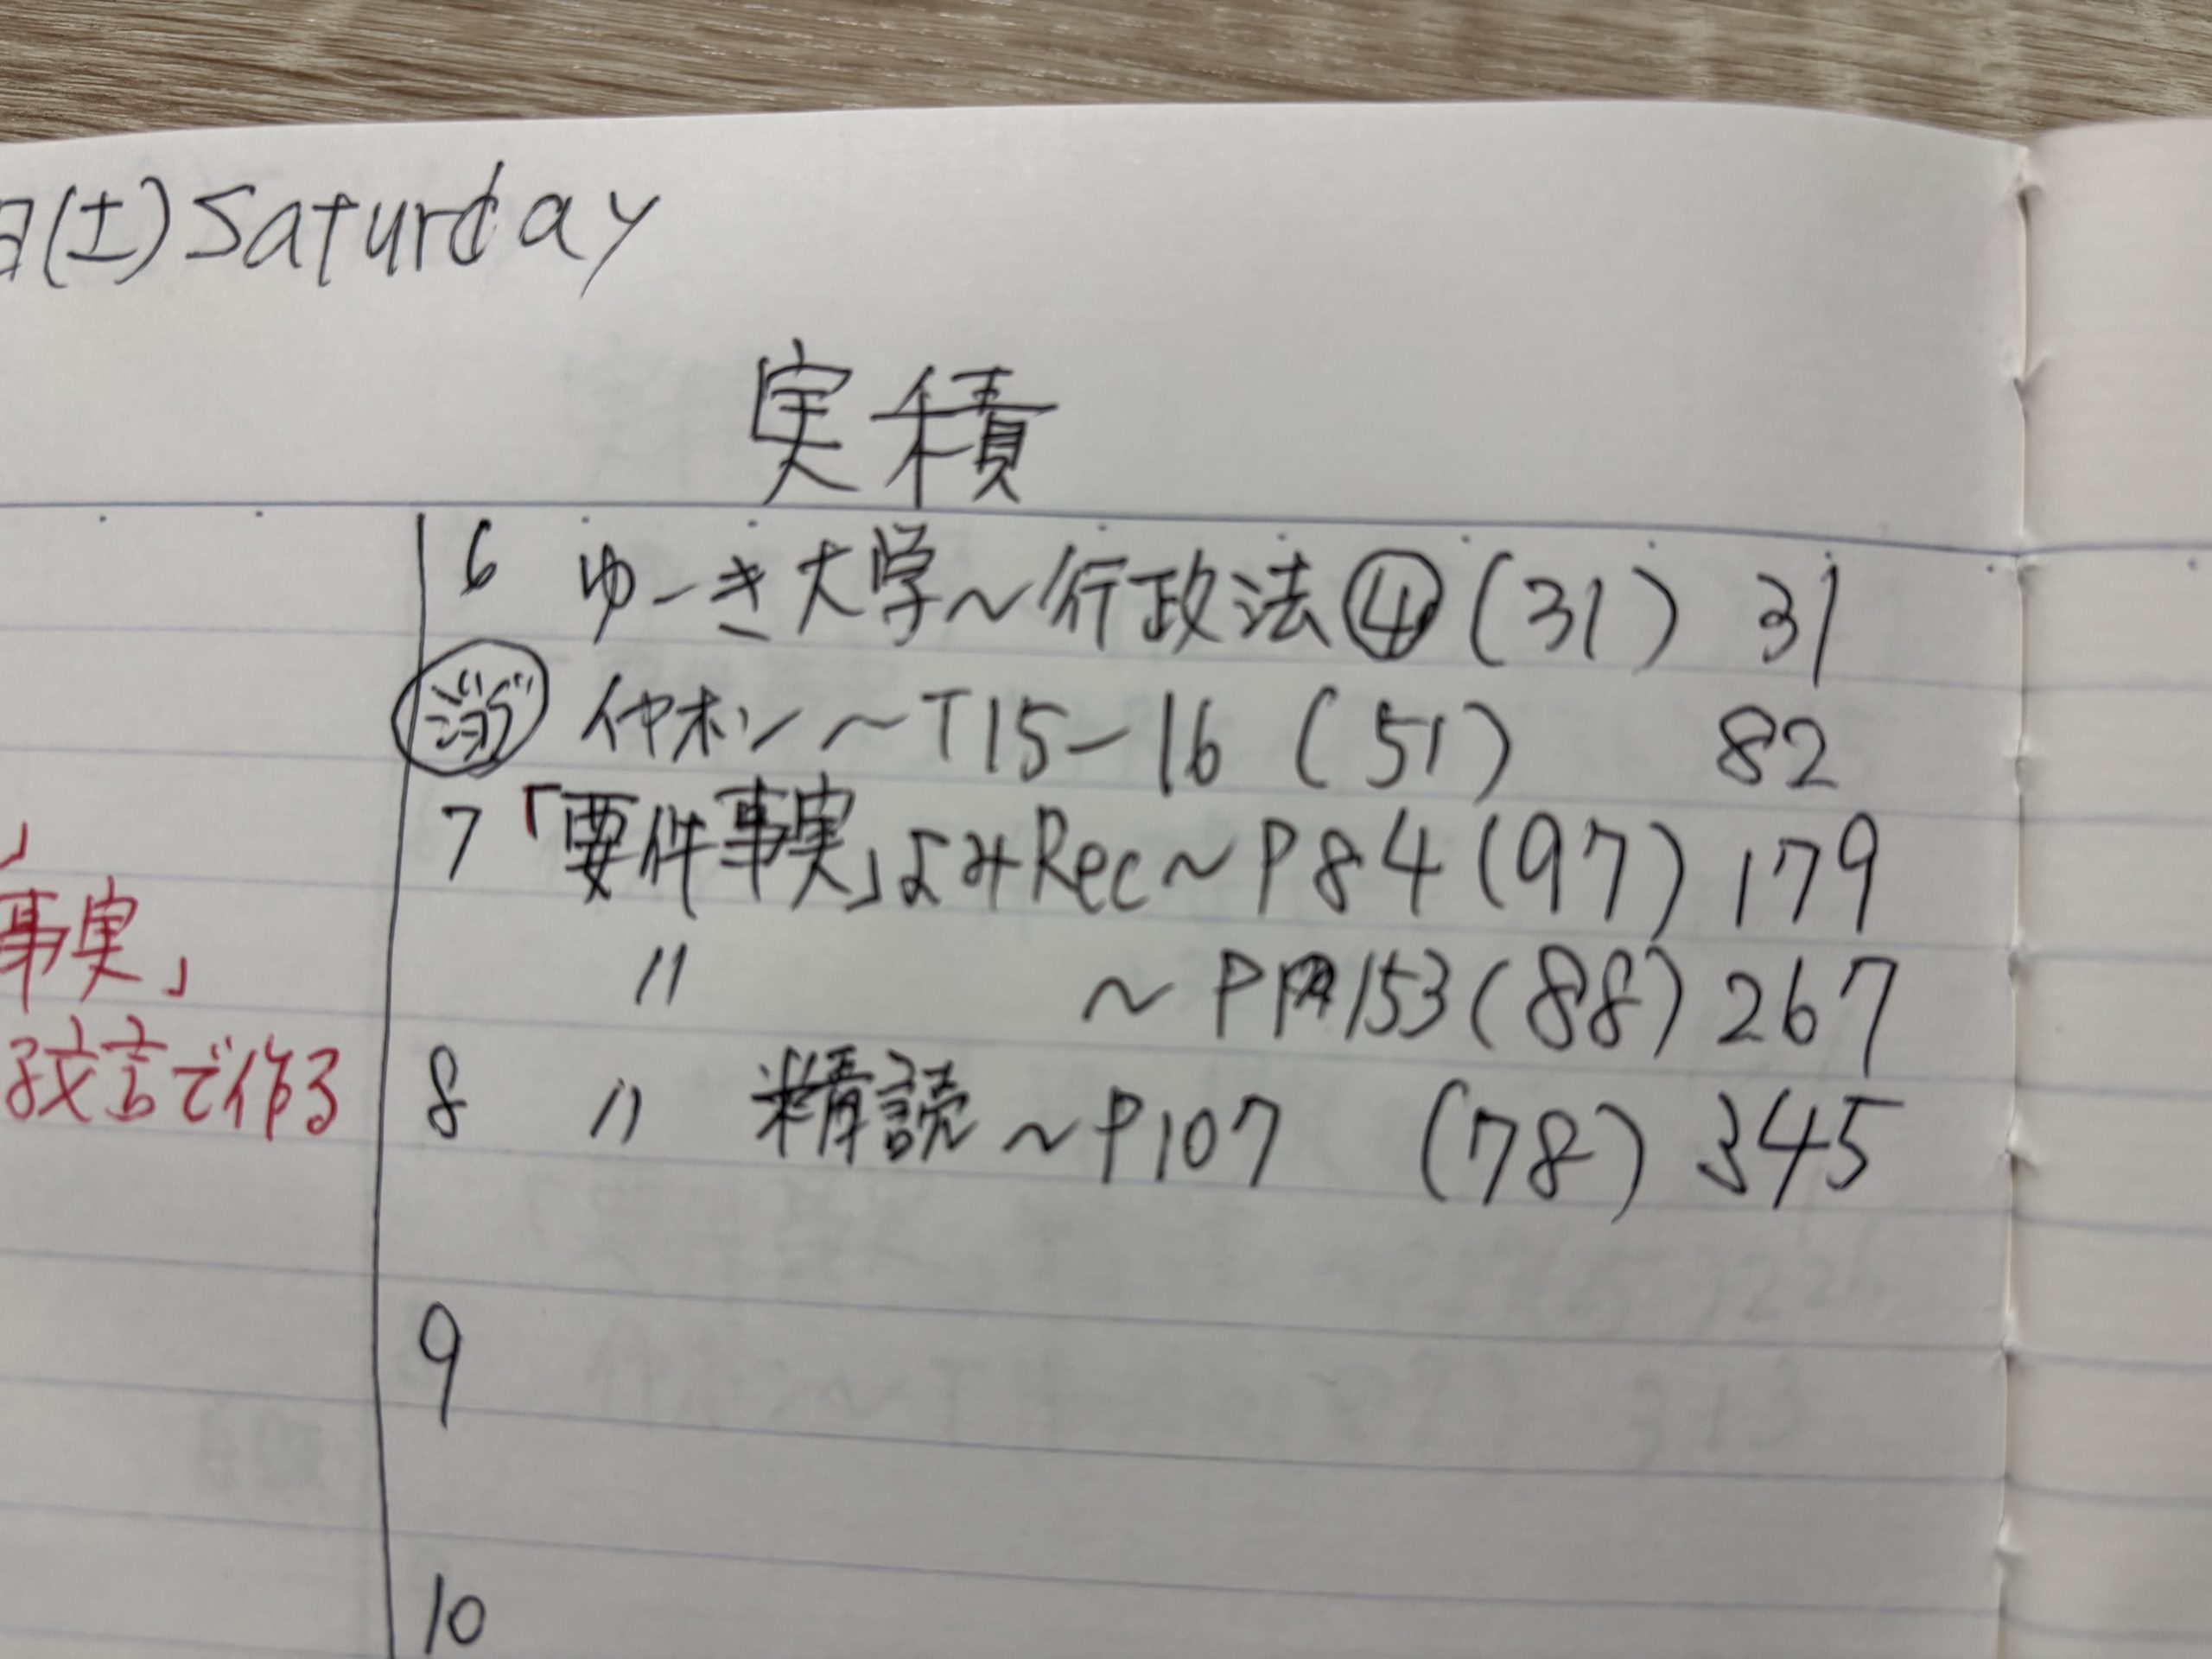 日(土)Saturday
実積
6 ゆーき大学～行政法④(31) 31
ジョグ イヤホン～T15-16 (51) 82
7 「要件事実」よみRec～P84(97) 179
〃 ～P153(88) 267
8 〃 精読～P107 (78) 345
9
10
」
事実」
る文言で作る